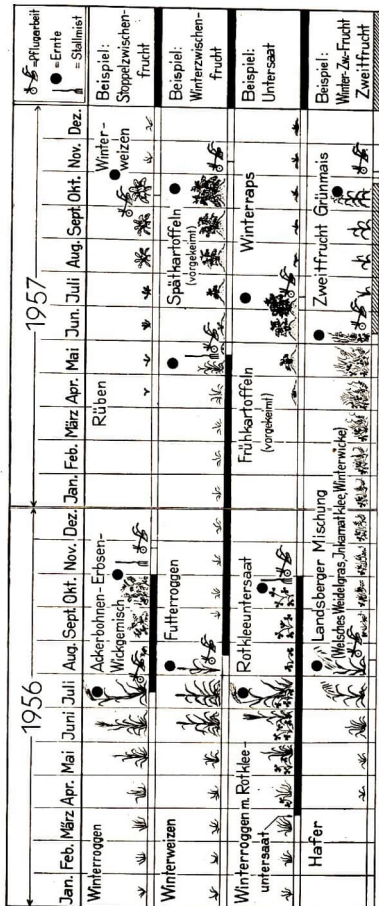 1956
1957
Jan. Feb. März Apr. Mai Juni Juli Aug. Sept. Okt. Nov. Dez. Jan. Feb. März Apr. Mai Jun. Juli Aug. Sept. Okt. Nov. Dez.
= Pflugarbeit
= Ernte
= Stallmist
Winterroggen
Ackerbohnen-Erbsen-
Wickgemisch
Rüben
Winter-
weizen
Beispiel:
Stoppelzwischen-
frucht
Winterweizen
Futterroggen
Spätkartoffeln
(vorgekeimt)
Beispiel:
Winterzwischen-
frucht
Winterroggen m. Rotklee-
untersaat
Rotkleeuntersaat
Frühkartoffeln
(vorgekeimt)
Winterraps
Beispiel:
Untersaat
Hafer
Landsberger Mischung
(Welsches Weidelgras, Inkarnatklee, Winterwicke)
Zweitfrucht Grünmais
Beispiel:
Winter-Zw.-Frucht
Zweitfrucht